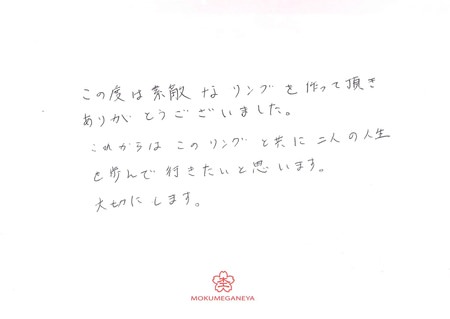 この度は素敵なリングを作って頂き
ありがとうございました。
これからはこのリングと共に二人の人生
を歩んで行きたいと思います。
大切にします。
MOKUMEGANEYA